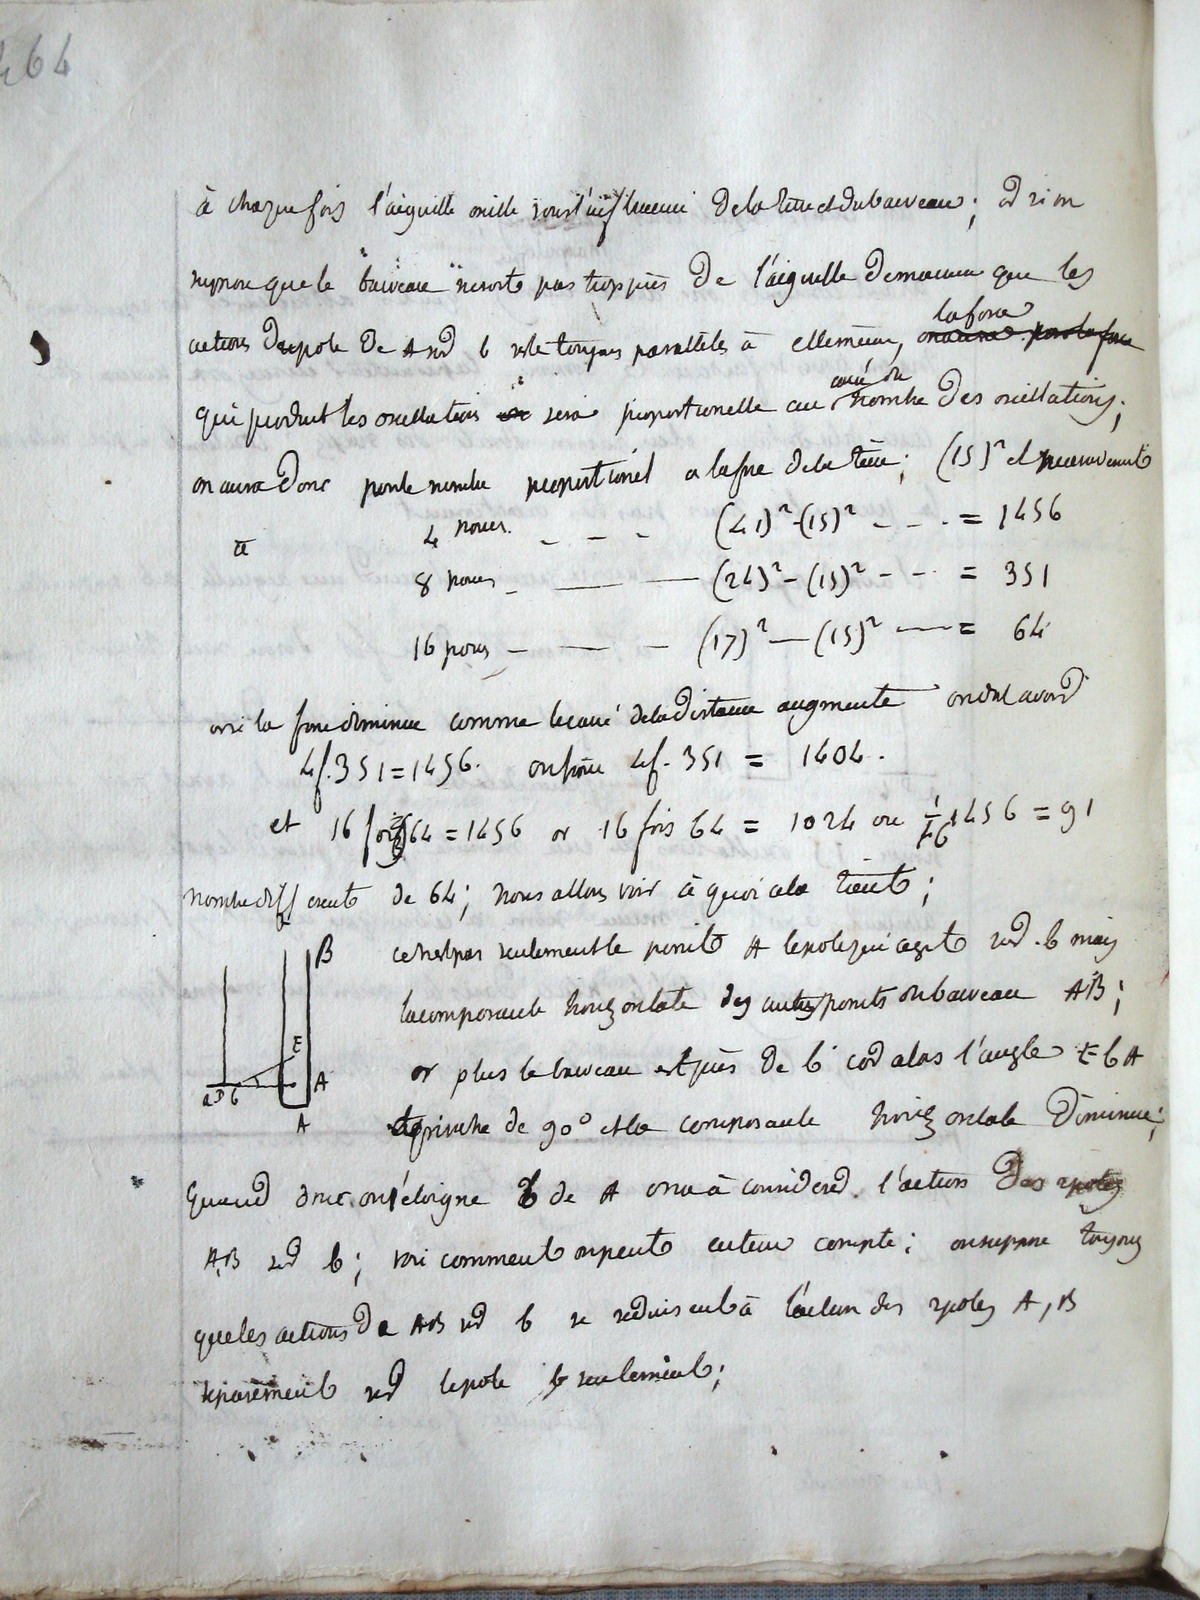 464
à chaque fois l'aiguille oscille sous l'influence de la terre et du barreau; et si on
suppose que le barreau ne soit pas trop près de l'aiguille de maniere que les
actions du pole de A sur b reste toujours parallèles à elle même, la force
qui produit les oscillations sera proportionelle au carré du nombre des oscillations;
on aura donc pour le nombre proportionel a la force de la terre; (15)² et
à 4 pouces. - - - (41)² - (15)² - - . = 1456
8 pouces - — — (24)² - (15)² - - . = 351
16 pouces - — - - (17)² — (15)² — = 64
or si la force diminue comme le carré de la distance augmente on doit avoir
4f. 351 = 1456. on trouve 4f. 351 = 1404.
et 16 fois 64 = 1456 or 16 fois 64 = 1024 ou 1/16 1456 = 91
nombre different de 64; nous allons voir à quoi cela tient;
B
E
A
a b
A
ce n'est pas seulement le point A le pole qui agit sur b mais
la composante horizontale des autres points du barreau AB;
or plus le barreau est près de b alors l'angle E b A
approche de 90° et la composante horizontale diminue;
Quand donc on éloigne b de A on a à considerer l'action des 2 poles
A, B sur b; voici comment on peut en tenir compte; on suppose toujours
que les actions de AB sur b se reduisent à l'action des 2 poles A, B
séparément sur le pole b seulement;